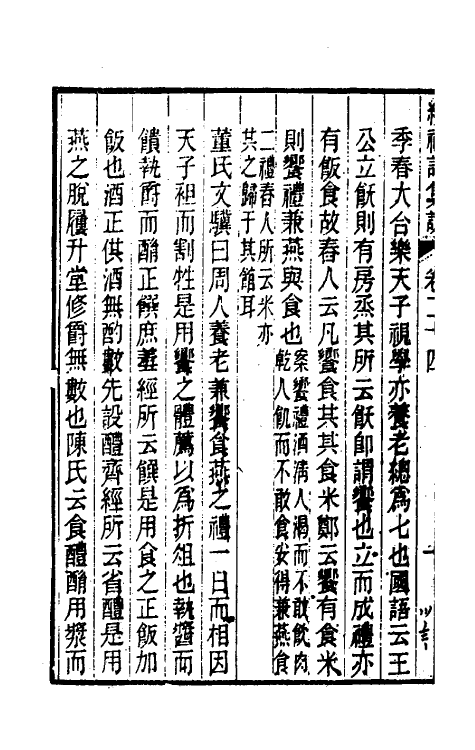 禮記集說 卷二十四
季春大合樂天子視學亦養老總為七也國語云王
公立飫則有房烝其所云飫卽謂饗也立而成禮亦
有飯食故舂人云凡饗食其其食米鄭云饗有食米
則饗禮兼燕與食也
案饗禮酒淸人渴而不敢飲肉
乾人飢而不敢食安得兼燕食
二禮舂人所云米亦
其之歸于其館耳
董氏文驥曰周人養老兼饗食燕之禮一日而相因
天子袒而割牲是用饗之體薦以為折俎也執醬而
饋執爵而酳正饌庶羞經所云饌是用食之正飯加
飯也酒正供酒無酌數先設醴齊經所云省醴是用
燕之脫屨升堂修爵無數也陳氏云食醴酳用漿而